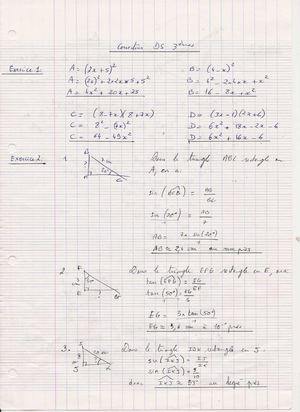 Correction DS 3èmes
Exercice 1:
A = (2x + 5)²
A = (2x)² + 2×2x×5 + 5²
A = 4x² + 20x + 25
B = (4 - x)²
B = 4² - 2×4×x + x²
B = 16 - 8x + x²
C = (8 - 7x)(8 + 7x)
C = 8² - (7x)²
C = 64 - 49x²
D = (3x - 1)(2x + 6)
D = 6x² + 18x - 2x - 6
D = 6x² + 16x - 6
Exercice 2:
1.
Dans le triangle ABC rectangle en
A, on a:
AB
BC
sin (20°) = AB
7
AB = 7 × sin (20°)
AB ≈ 2,4 cm au mm près
2.
Dans le triangle EFG rectangle en E, on a
tan (EFG) = EG
EF
tan (50°) = EG
3
EG = 3 × tan (50°)
EG ≈ 3,6 cm à 10⁻¹ près
3.
Dans le triangle IJK rectangle en J.
sin (IKJ) = IJ
IK
sin (IKJ) = 8
10
donc IKJ ≈ 53° au degré près